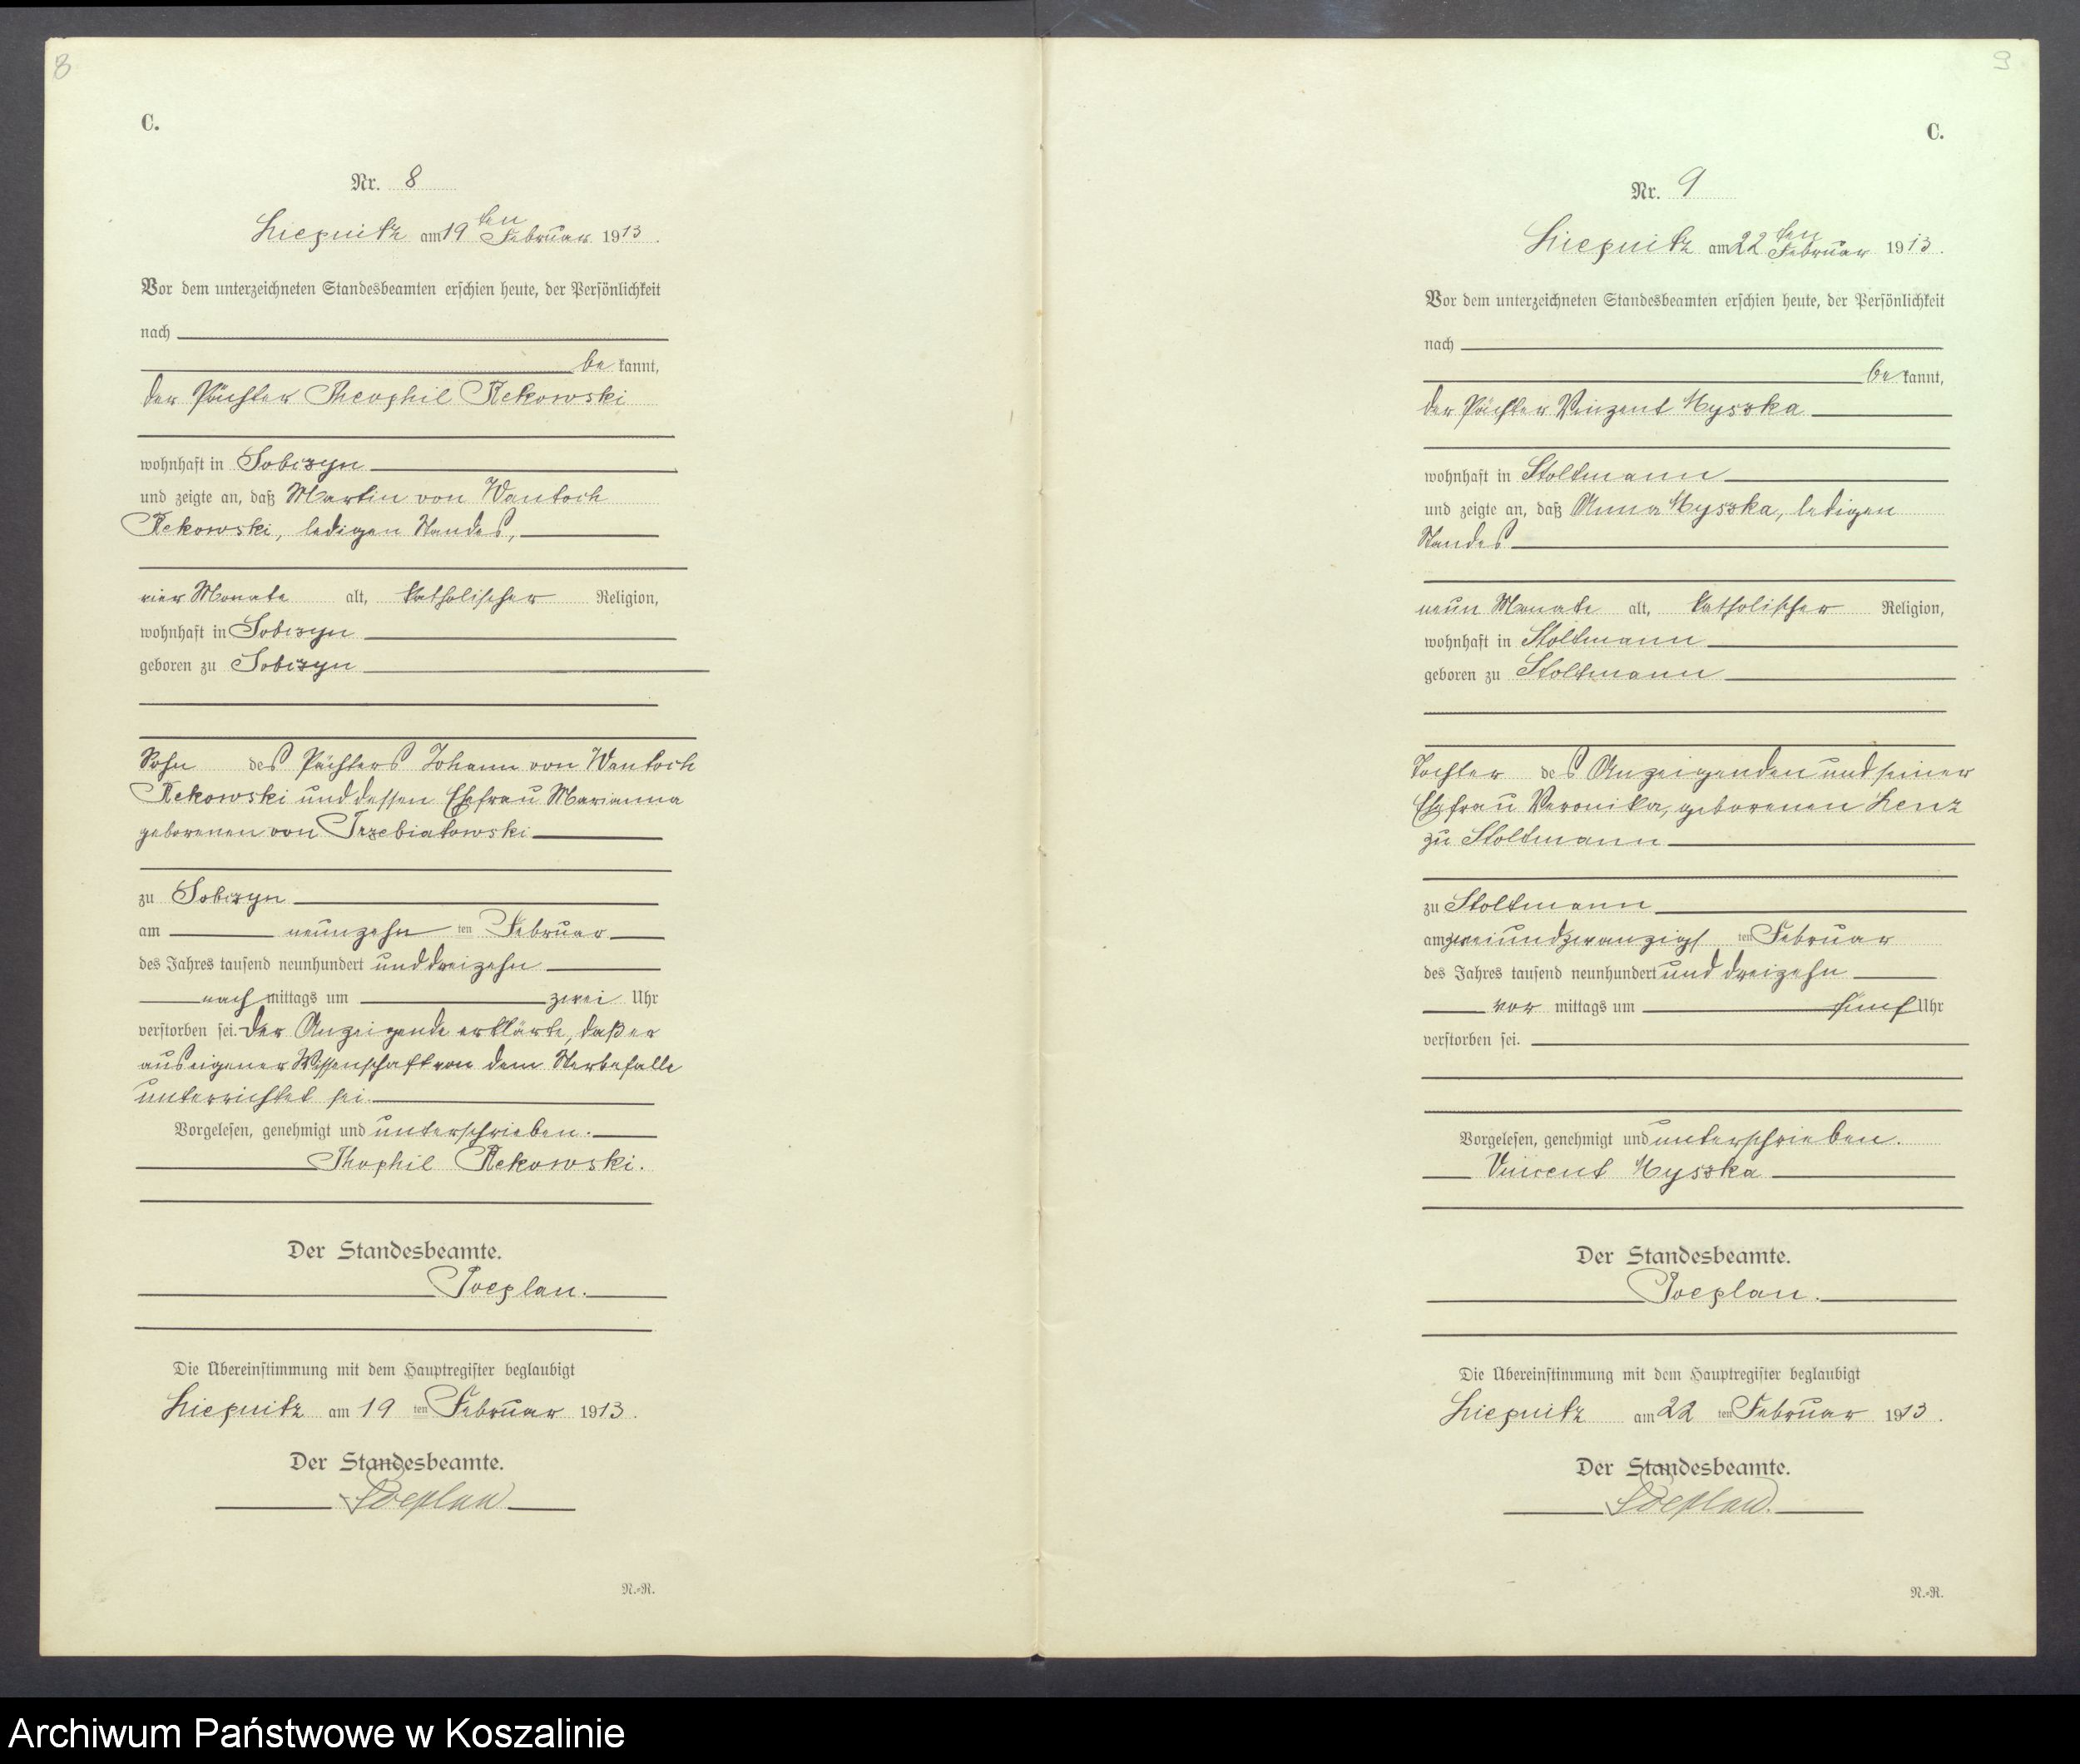 8
C.
Nr. 8
Liepnitz am 19 ten Februar 1913.
Vor dem unterzeichneten Standesbeamten erschien heute, der Persönlichkeit
nach
be kannt,
der Pächter Theophil Rekowski
wohnhaft in Sobczyn
und zeigte an, daß Martin von Wantoch
Rekowski, ledigen Standes,
vier Monate alt, katholischer Religion,
wohnhaft in Sobczyn
geboren zu Sobczyn
Sohn des Pächters Johann von Wantoch
Rekowski und dessen Ehefrau Marianna
geborenen von Trzebiatowski
zu Sobczyn
am neunzehn ten Februar
des Jahres tausend neunhundert und dreizehn
nach mittags um zwei Uhr
verstorben sei. Der Anzeigende erklärte, daß er
aus eigener Wissenschaft von dem Sterbefalle
unterrichtet sei.
Vorgelesen, genehmigt und unterschrieben.
Thophil Rekowski.
Der Standesbeamte.
Poeplau.
Die Übereinstimmung mit dem Hauptregister beglaubigt
Liepnitz am 19 ten Februar 1913.
Der Standesbeamte.
Poeplau
N.-R.
9
C.
Nr. 9
Liepnitz am 22 ten Februar 1913.
Vor dem unterzeichneten Standesbeamten erschien heute, der Persönlichkeit
nach
be kannt,
der Pächter Vinzent Myszka
wohnhaft in Stoltmann
und zeigte an, daß Anna Myszka, ledigen
Standes
neun Monate alt, katholischer Religion,
wohnhaft in Stoltmann
geboren zu Stoltmann
Tochter des Anzeigenden und seiner
Ehefrau Veronika, geborenen Lenz
zu Stoltmann
zu Stoltmann
am zweiundzwanzigs ten Februar
des Jahres tausend neunhundert und dreizehn
vor mittags um fünf Uhr
verstorben sei.
Vorgelesen, genehmigt und unterschrieben.
Vincent Myszka
Der Standesbeamte.
Poeplau.
Die Übereinstimmung mit dem Hauptregister beglaubigt
Liepnitz am 22 ten Februar 1913.
Der Standesbeamte.
Poeplau.
N.-R.
Archiwum Państwowe w Koszalinie